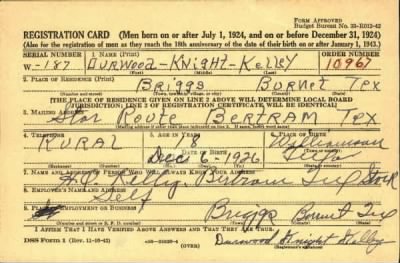 FORM APPROVED
Budget Bureau No. 33-R012-42
REGISTRATION CARD (Men born on or after July 1, 1924, and on or before December 31, 1924)
(Also for the registration of men as they reach the 18th anniversary of the date of their birth on or after January 1, 1943.)
SERIAL NUMBER 1. NAME (Print) ORDER NUMBER
W-187 DURWOOD-KNIGHT-KELLEY 10967
(First) (Middle) (Last)
2. PLACE OF RESIDENCE (Print)
Briggs Burnet Tex
(Number and street) (Town, township, village, or city) (County) (State)
[THE PLACE OF RESIDENCE GIVEN ON LINE 2 ABOVE WILL DETERMINE LOCAL BOARD
JURISDICTION; LINE 2 OF REGISTRATION CERTIFICATE WILL BE IDENTICAL]
3. MAILING ADDRESS
Star Route BERTRAM Tex
[Mailing address if other than place indicated on line 2. If same, insert word same]
4. TELEPHONE 5. AGE IN YEARS 6. PLACE OF BIRTH
RURAL 18 Williamson
DATE OF BIRTH
Dec 6-1926
7. NAME AND ADDRESS OF PERSON WHO WILL ALWAYS KNOW YOUR ADDRESS
Kelley, Bertram Tex
8. EMPLOYER'S NAME AND ADDRESS
Self
9. PLACE OF EMPLOYMENT OR BUSINESS
Briggs Burnet Tex
(Number and street or R. F. D. number) (Town) (County) (State)
I AFFIRM THAT I HAVE VERIFIED ABOVE ANSWERS AND THAT THEY ARE TRUE.
DSS FORM 1 (Rev. 11-16-42) (OVER) Durwood Knight Kelley
(Registrant's signature)